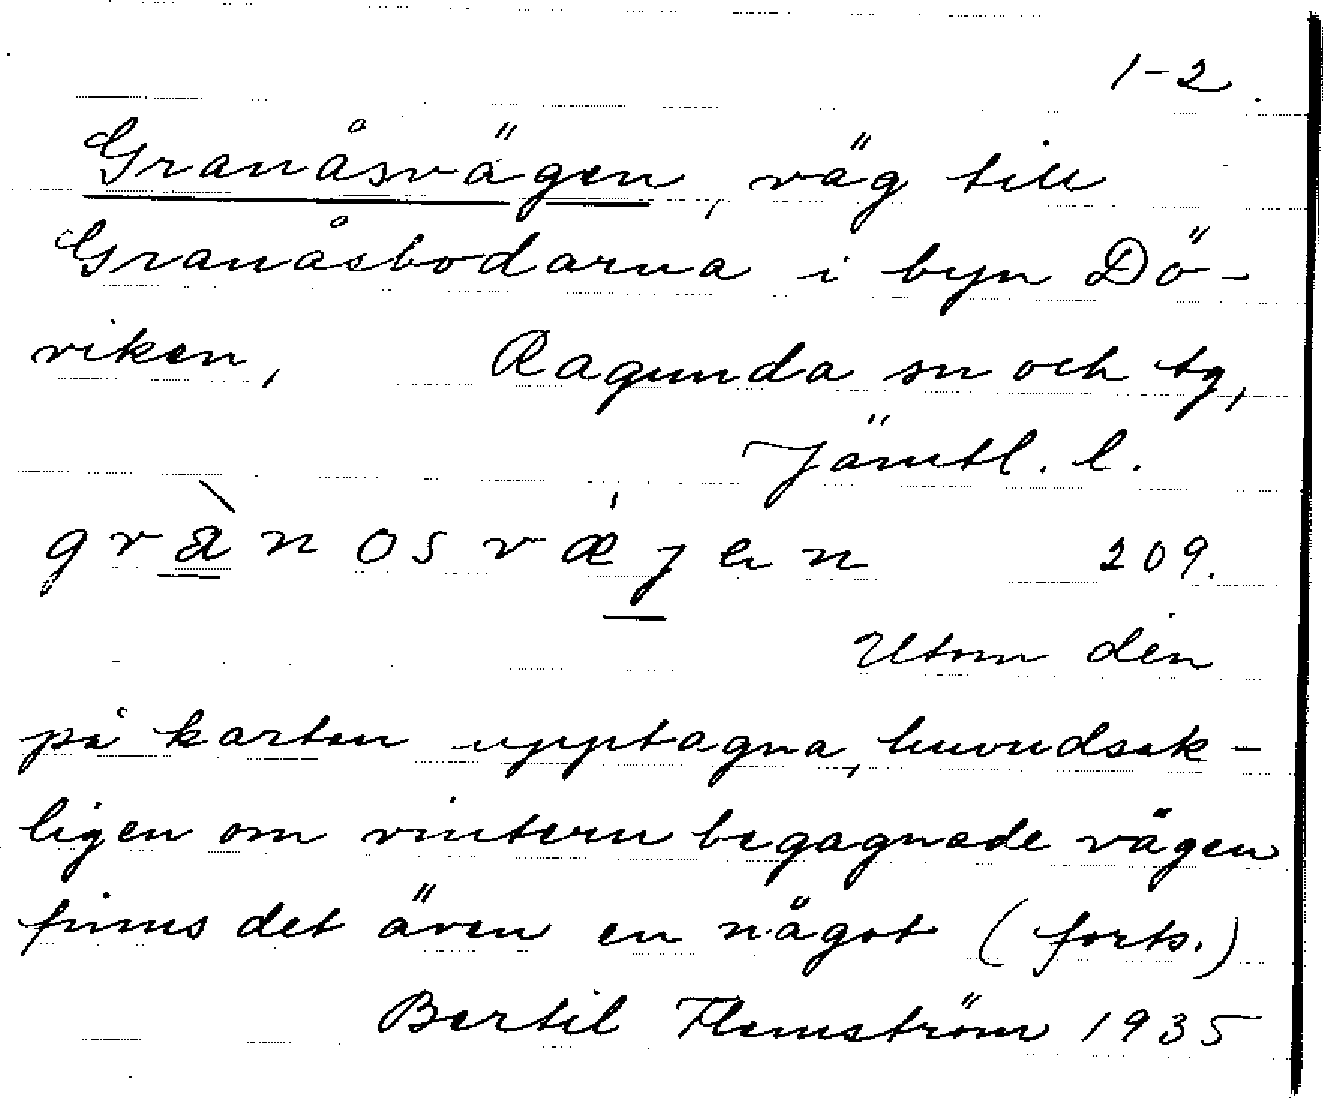 1-2.
Granåsvägen, väg till
Granåsbodarna i byn Dö-
viken, Ragunda sn och tg,
Jämtl. l.
grànosvæ̍jen 209.
Utom den
på kartan upptagna, huvudsak-
ligen om vintern begagnade vägen
finns det även en något (forts.)
Bertil Flemström 1935